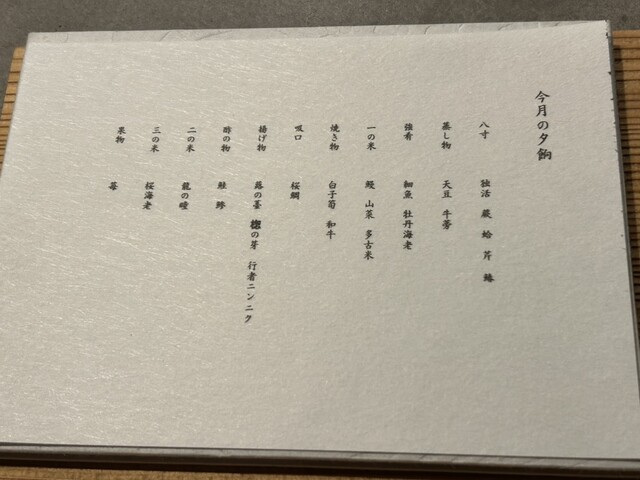 今月の夕餉
八寸 独活 蕨 蛤 芹 鰆
蒸し物 天豆 牛蒡
強肴 細魚 牡丹海老
一の米 鰻 山菜 多古米
焼き物 白子筍 和牛
吸口 桜鯛
揚げ物 蕗の薹 楤の芽 行者ニンニク
酢の物 鮭
二の米 龍の瞳
三の米 桜海老
果物 苺